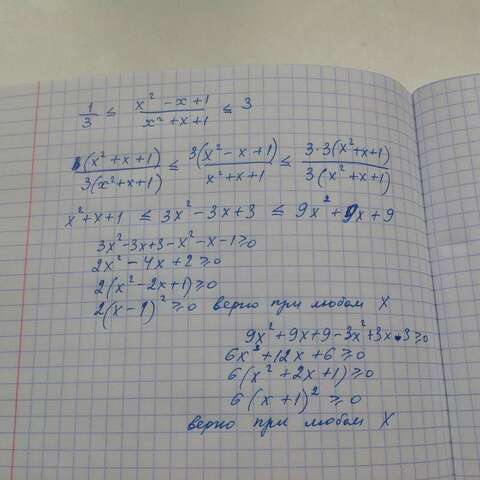 1/3 ≤ (x² - x + 1)/(x² + x + 1) ≤ 3
(x² + x + 1)/(3(x² + x + 1)) ≤ 3(x² - x + 1)/(x² + x + 1) ≤ 3·3(x² + x + 1)/(3(x² + x + 1))
x² + x + 1 ≤ 3x² - 3x + 3 ≤ 9x² + 9x + 9
3x² - 3x + 3 - x² - x - 1 ≥ 0
2x² - 4x + 2 ≥ 0
2(x² - 2x + 1) ≥ 0
2(x - 1)² ≥ 0 верно при любом X
9x² + 9x + 9 - 3x² + 3x - 3 ≥ 0
6x² + 12x + 6 ≥ 0
6(x² + 2x + 1) ≥ 0
6(x + 1)² ≥ 0
верно при любом X